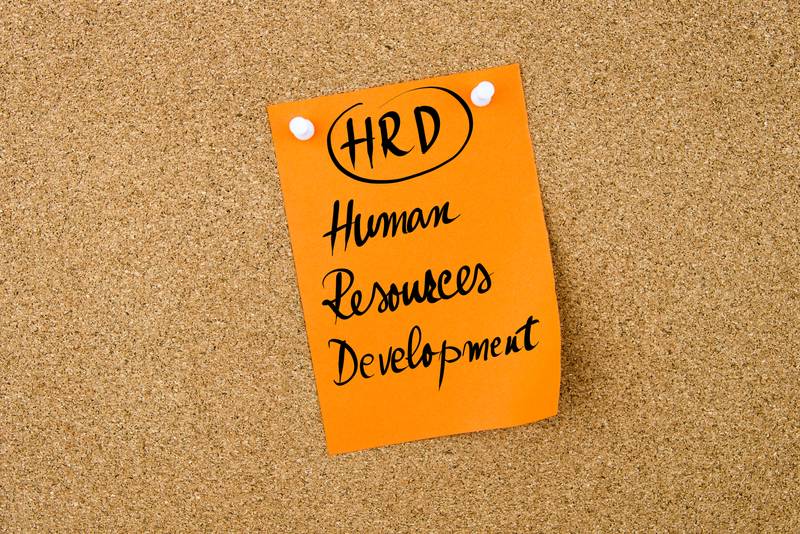 HRD
Human
Resources
Development